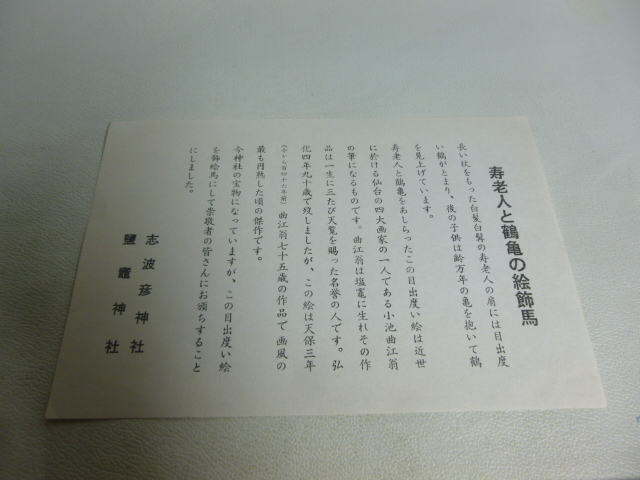 寿老人と鶴亀の絵飾馬
長い杖をもった白髪白髯の寿老人の肩には目出度
い鶴がとまり、後の子供は齢万年の亀を抱いて鶴
を見上げています。
寿老人と鶴亀をあしらったこの目出度い絵は近世
に於ける仙台の四大画家の一人である小池曲江翁
の筆になるものです。曲江翁は塩竈に生れその作
品は一生に三たび天覧を賜った名誉の人です。弘
化四年九十歳で歿しましたが、この絵は天保三年
(今から百四十六年前)曲江翁七十五歳の作品で画風の
最も円熟した頃の傑作です。
今神社の宝物になっていますが、この目出度い絵
を飾絵馬にして崇敬者の皆さんにお頒ちすること
にしました。
志波彦神社
鹽竈神社